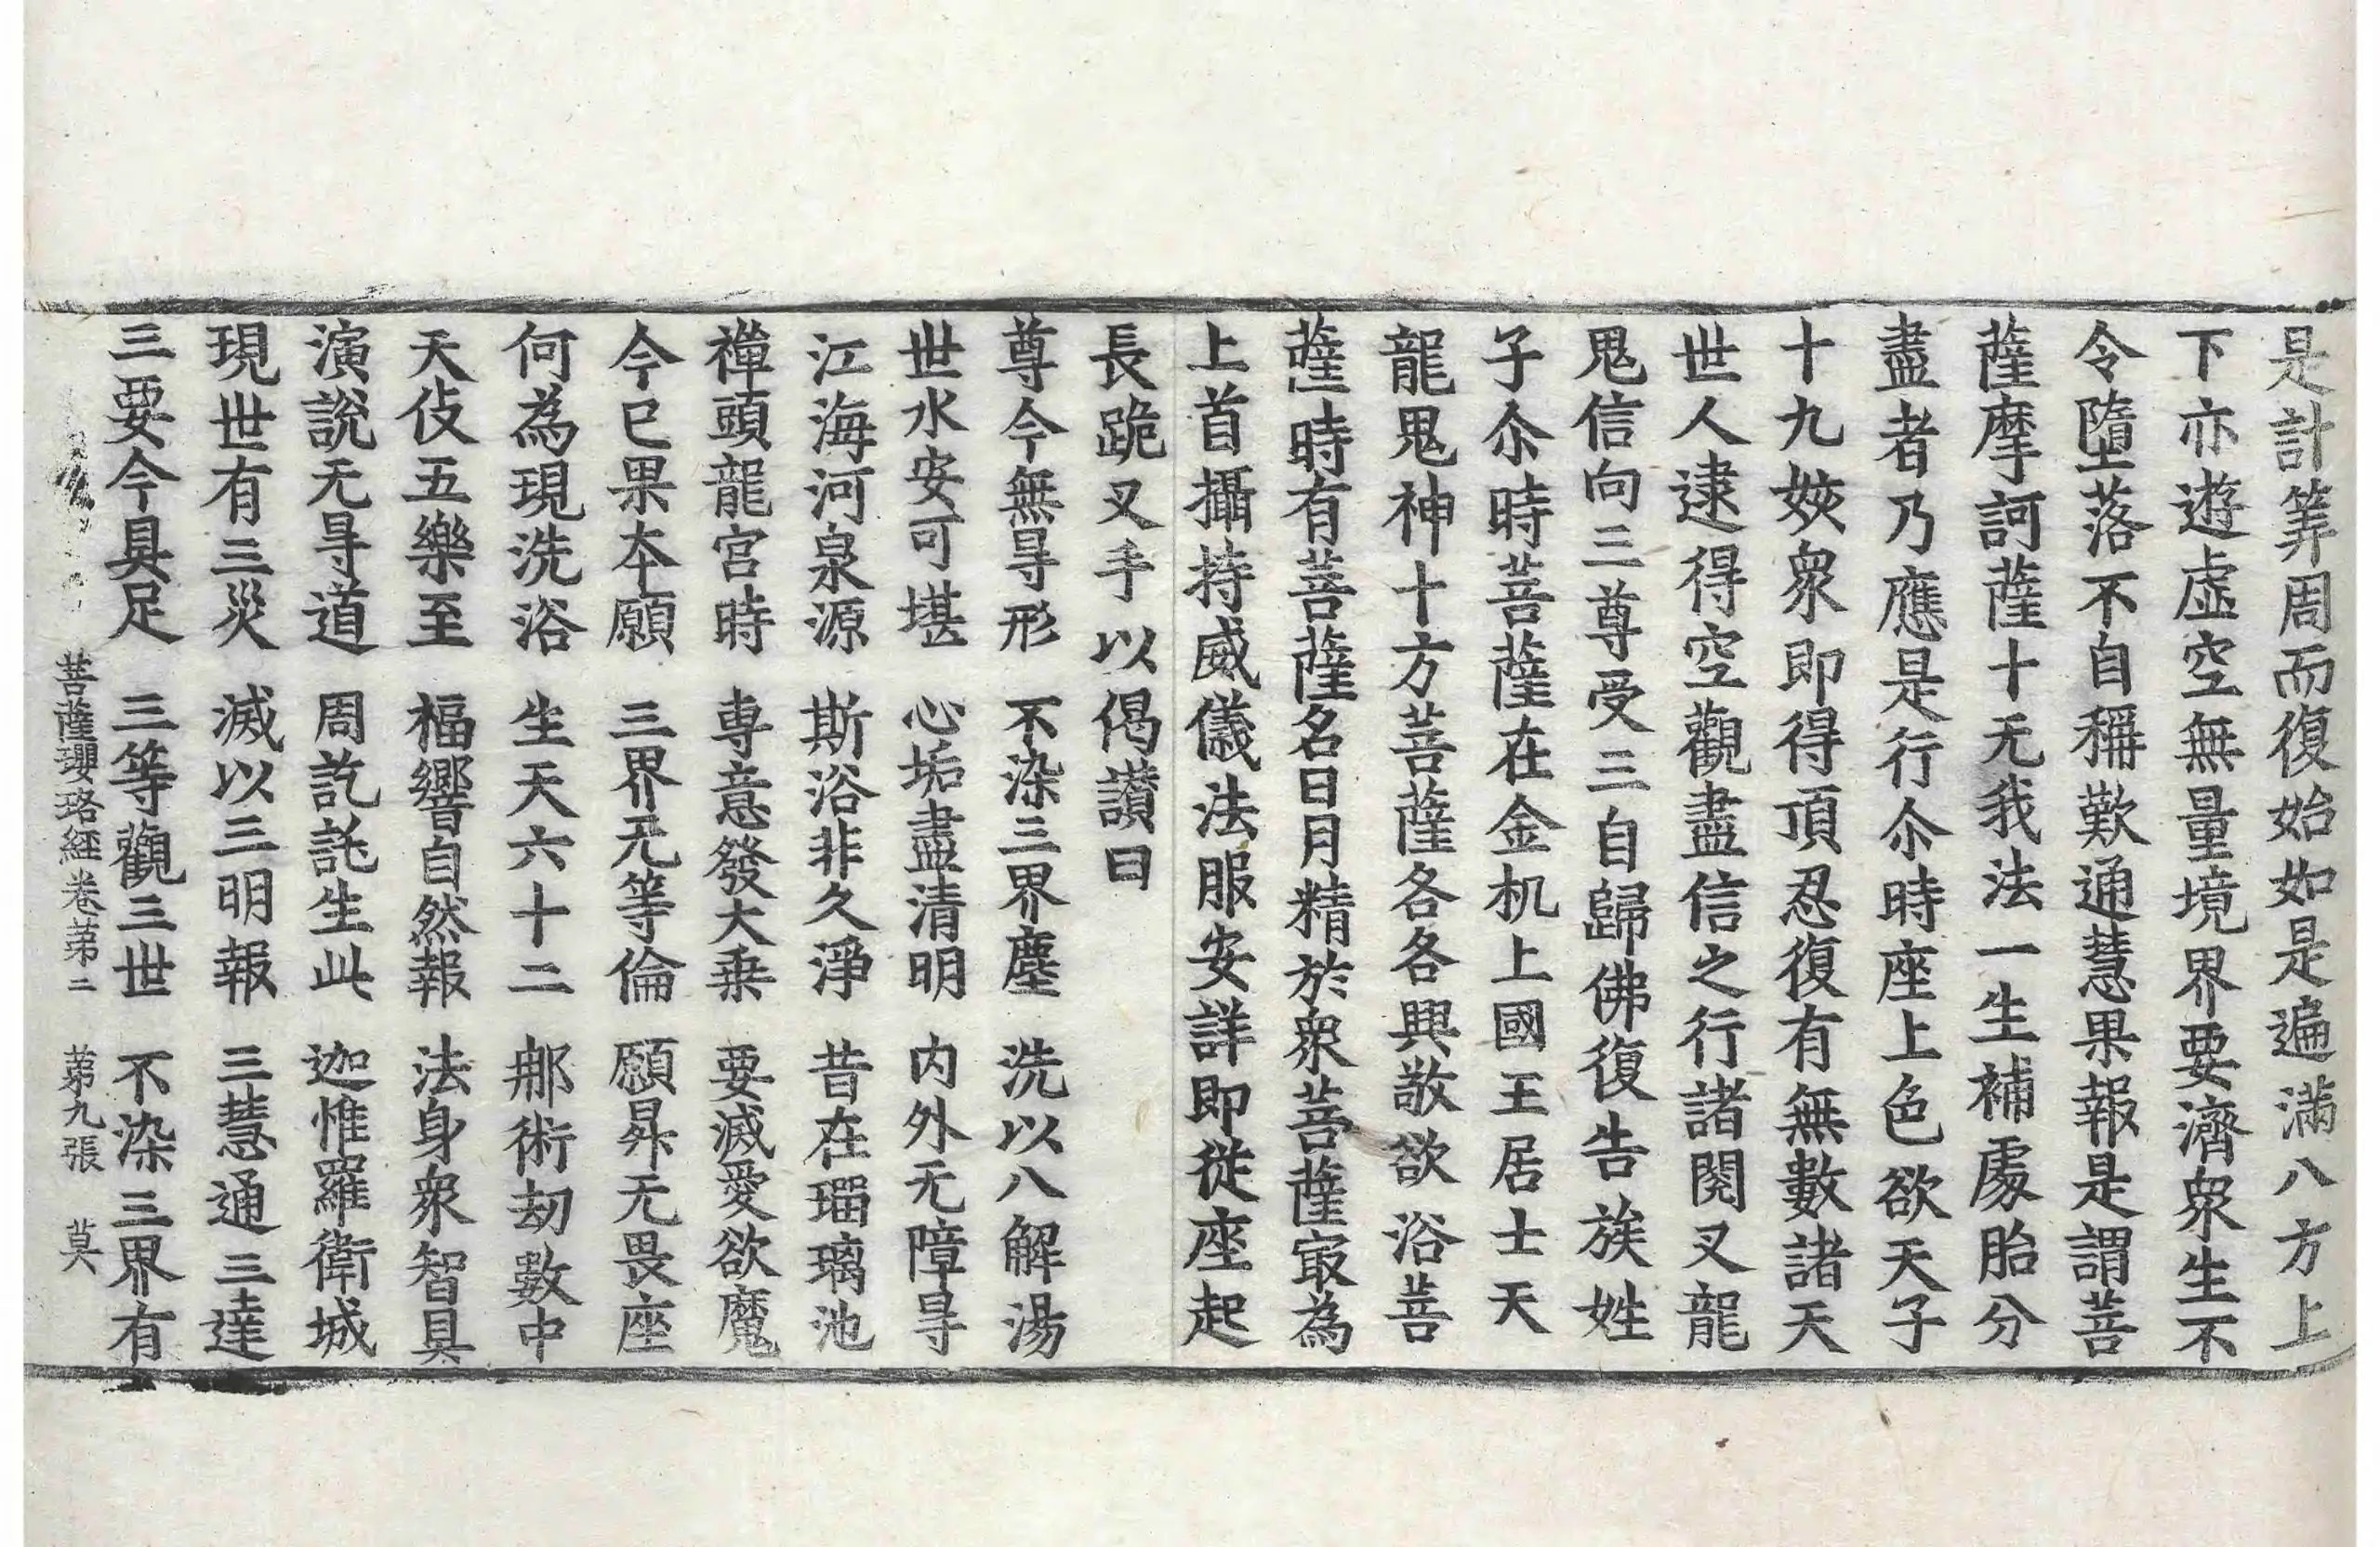 是計筭周而復始如是遍滿八方上
下亦遊虛空無量境界要濟衆生不
令墮落不自稱歎通慧果報是謂菩
薩摩訶薩十无我法一生補處胎分
盡者乃應是行尒時座上色欲天子
十九姟衆即得頂忍復有無數諸天
世人逮得空觀盡信之行諸閱叉龍
鬼信向三尊受三自歸佛復告族姓
子尒時菩薩在金机上國王居士天
龍鬼神十方菩薩各各興敬欲浴菩
薩時有菩薩名日月精於衆菩薩㝡為
上首攝持威儀法服安詳即從座起
長跪叉手以偈讃曰
尊今無㝵形　不染三界塵　洗以八解湯
世水安可堪　心垢盡清明　内外无障㝵
江海河泉源　斯浴非久淨　昔在瑠璃池
禪頭龍宮時　専意發大乗　要滅愛欲魔
今已果本願　三界无等倫　願昇无畏座
何為現洗浴　生天六十二　郍術劫數中
天伎五樂至　福響自然報　法身衆智具
演說无㝵道　周訖託生此　迦惟羅衛城
現世有三災　滅以三明報　三慧通三達
三要今具足　三等觀三世　不染三界有
菩薩瓔珞經卷苐二　苐九張　莫